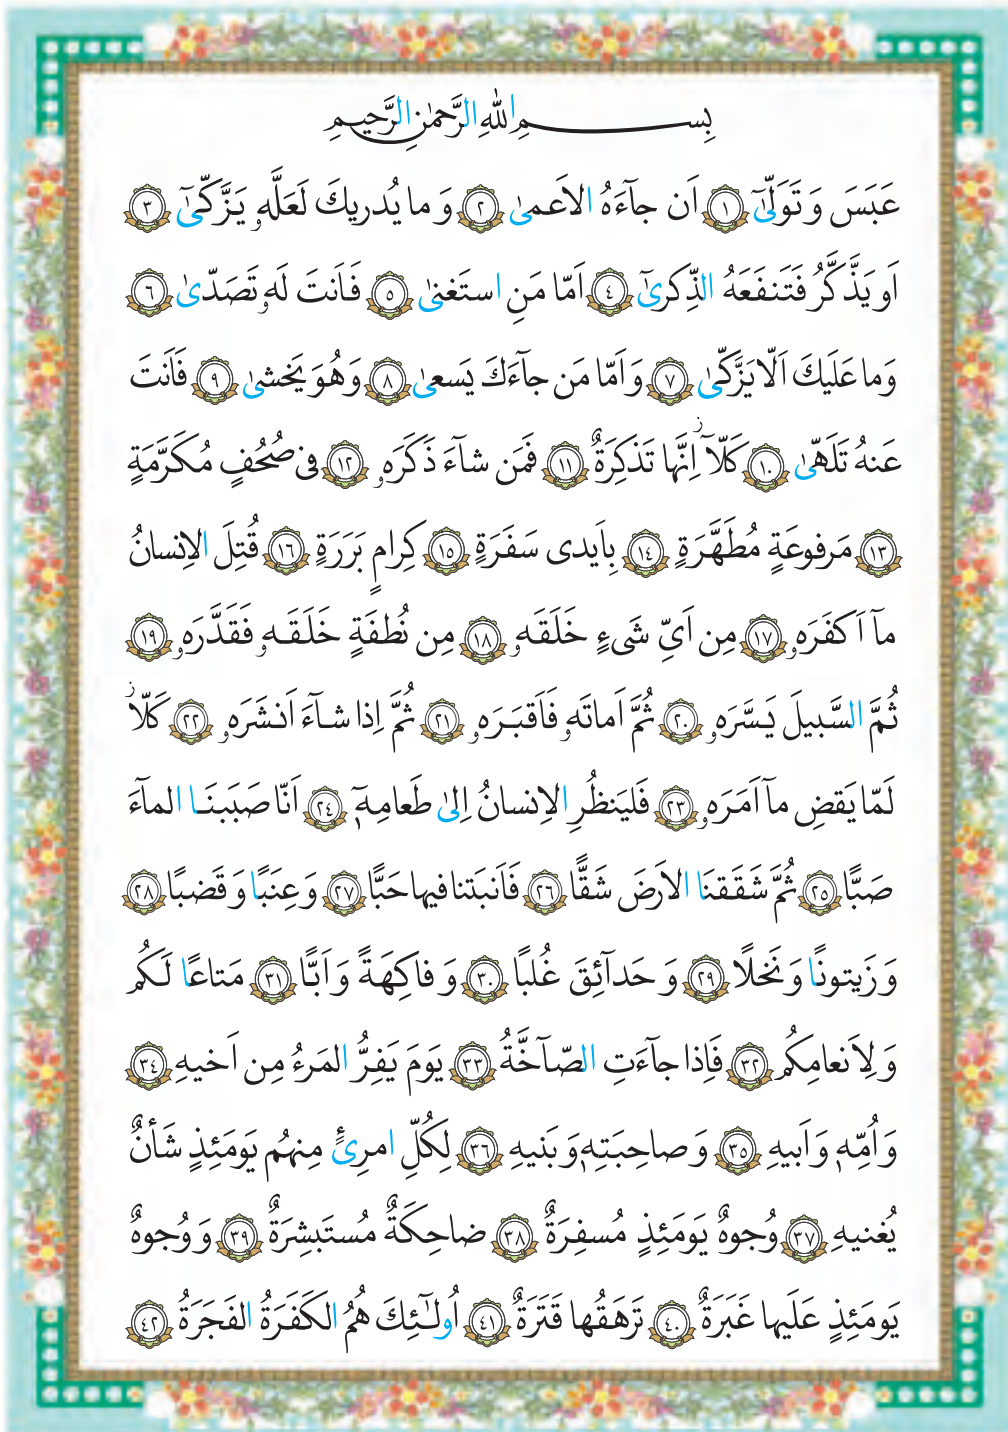 بِسمِ اللهِ الرَّحمٰنِ الرَّحیمِ
عَبَسَ وَ تَوَلّىٰٓ ﴿١﴾ اَن جآءَهُ الاَعمىٰ ﴿٢﴾ وَ ما يُدريكَ لَعَلَّهۥ يَزَّكّىٰٓ ﴿٣﴾
اَو يَذَّكَّرُ فَتَنفَعَهُ الذِّكرىٰٓ ﴿٤﴾ اَمّا مَنِ استَغنىٰ ﴿٥﴾ فَاَنتَ لَهۥ تَصَدّىٰ ﴿٦﴾
وَما عَلَيكَ اَلّا يَزَّكّىٰ ﴿٧﴾ وَ اَمّا مَن جآءَكَ يَسعىٰ ﴿٨﴾ وَ هُوَ يَخشىٰ ﴿٩﴾ فَاَنتَ
عَنهُ تَلَهّىٰ ﴿١٠﴾ كَلّآ اِنَّها تَذكِرَةٌ ﴿١١﴾ فَمَن شآءَ ذَكَرَهۥ ﴿١٢﴾ فى صُحُفٍ مُكَرَّمَةٍ
﴿١٣﴾ مَرفوعَةٍ مُطَهَّرَةٍ ﴿١٤﴾ بِاَيدى سَفَرَةٍ ﴿١٥﴾ كِرامٍ بَرَرَةٍ ﴿١٦﴾ قُتِلَ الاِنسانُ
مآ اَكفَرَهۥ ﴿١٧﴾ مِن اَىِّ شَىءٍ خَلَقَهۥ ﴿١٨﴾ مِن نُطفَةٍ خَلَقَهۥ فَقَدَّرَهۥ ﴿١٩﴾
ثُمَّ السَّبيلَ يَسَّرَهۥ ﴿٢٠﴾ ثُمَّ اَماتَهۥ فَاَقبَرَهۥ ﴿٢١﴾ ثُمَّ اِذا شآءَ اَنشَرَهۥ ﴿٢٢﴾ كَلّا
لَمّا يَقضِ مآ اَمَرَهۥ ﴿٢٣﴾ فَليَنظُرِ الاِنسانُ اِلىٰ طَعامِهٖٓ ﴿٢٤﴾ اَنّا صَبَبنَا الماءَ
صَبًّا ﴿٢٥﴾ ثُمَّ شَقَقنَا الاَرضَ شَقًّا ﴿٢٦﴾ فَاَنبَتنا فيها حَبًّا ﴿٢٧﴾ وَ عِنَبًا وَ قَضبًا ﴿٢٨﴾
وَ زَيتونًا وَ نَخلًا ﴿٢٩﴾ وَ حَدآئِقَ غُلبًا ﴿٣٠﴾ وَ فاكِهَةً وَ اَبًّا ﴿٣١﴾ مَتاعًا لَكُم
وَ لِاَنعامِكُم ﴿٣٢﴾ فَاِذا جآءَتِ الصّآخَّةُ ﴿٣٣﴾ يَومَ يَفِرُّ المَرءُ مِن اَخيهِ ﴿٣٤﴾
وَ اُمِّهٖ وَ اَبيهِ ﴿٣٥﴾ وَ صاحِبَتِهٖ وَ بَنيهِ ﴿٣٦﴾ لِكُلِّ امرِئٍ مِنهُم يَومَئِذٍ شَأنٌ
يُغنيهِ ﴿٣٧﴾ وُجوهٌ يَومَئِذٍ مُسفِرَةٌ ﴿٣٨﴾ ضاحِكَةٌ مُستَبشِرَةٌ ﴿٣٩﴾ وَ وُجوهٌ
يَومَئِذٍ عَلَيها غَبَرَةٌ ﴿٤٠﴾ تَرهَقُها قَتَرَةٌ ﴿٤١﴾ اُولٰٓئِكَ هُمُ الكَفَرَةُ الفَجَرَةُ ﴿٤٢﴾